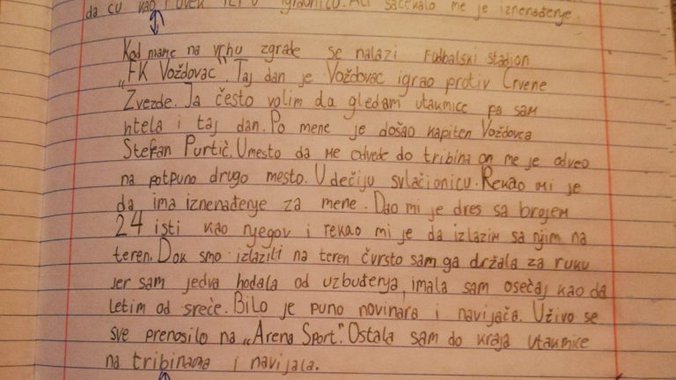 da ću kao i uvek ići u igraonicu. Ali sačekalo me je iznenađenje.
Kod mame na vrhu zgrade se nalazi fudbalski stadion
„FK Voždovac“. Taj dan je Voždovac igrao protiv Crvene
Zvezde. Ja često volim da gledam utakmice pa sam
htela i taj dan. Po mene je došao kapiten Voždovca
Stefan Purtić. Umesto da me odvede do tribina on me je odveo
na potpuno drugo mesto. U dečiju svlačionicu. Rekao mi je
da ima iznenađenje za mene. Dao mi je dres sa brojem
24 isti kao njegov i rekao mi je da izlazim sa njim na
teren. Dok smo izlazili na teren čvrsto sam ga držala za ruku
jer sam jedva hodala od uzbuđenja, imala sam osećaj kao da
letim od sreće. Bilo je puno novinara i navijača. Uživo se
sve prenosilo na „Arena Sport“. Ostala sam do kraja utakmice
na tribinama i navijala.